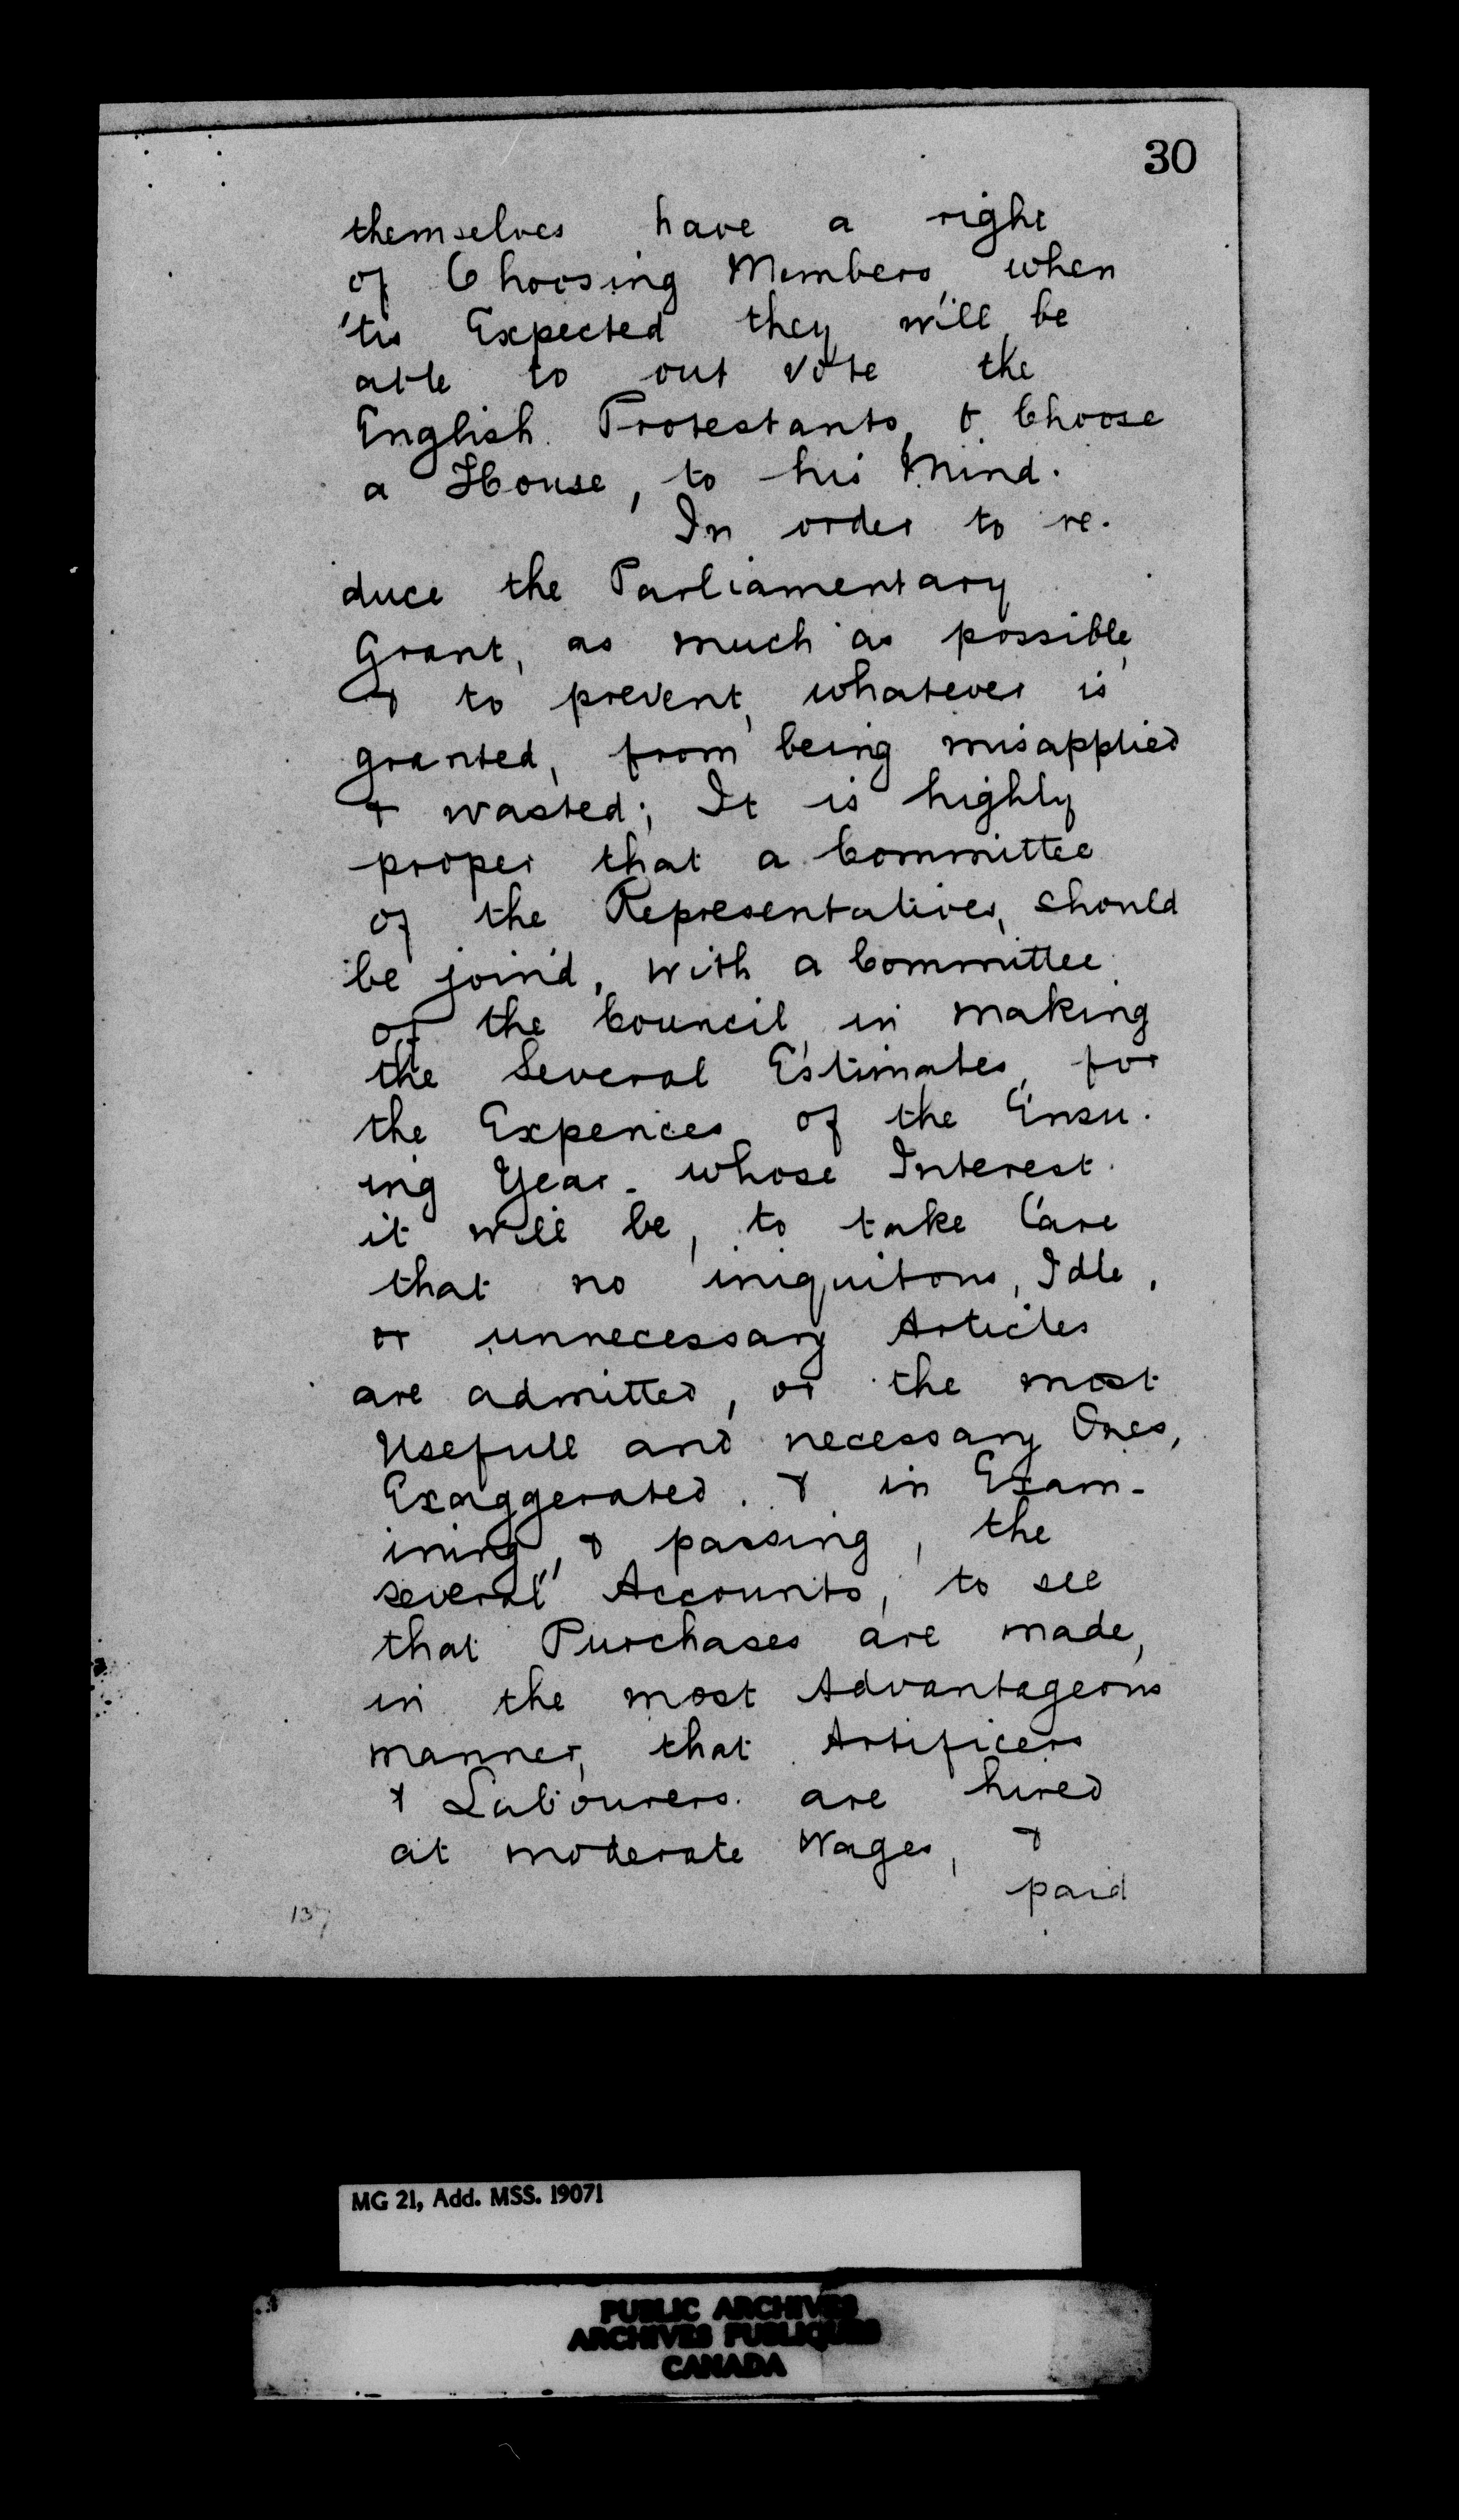 30
themselves have a right
of Choosing Members, when
'tis Expected they will, be
able to out vote the
English Protestants, & Choose
a House, to his Mind.
In order to re-
duce the Parliamentary
Grant, as much as possible,
& to prevent, whatever is
granted, from being misapplied
& wasted; It is highly
proper that a Committee
of the Representatives, should
be join'd, with a Committee
of the Council, in making
the Several Estimates, for
the Expences, of the Ensu-
ing Year - whose Interest
it will be, to take Care
that no iniquitous, Idle,
or unnecessary Articles
are admitted, or the most
Usefull and necessary Ones,
Exaggerated. & in Exam-
ining, & passing, the
several Accounts, to see
that Purchases are made,
in the most Advantageous
manner, that Artificers
& Labourers are hired
at moderate Wages, &
paid
137
MG 21, Add. MSS. 19071
PUBLIC ARCHIVES
ARCHIVES PUBLIQUES
CANADA